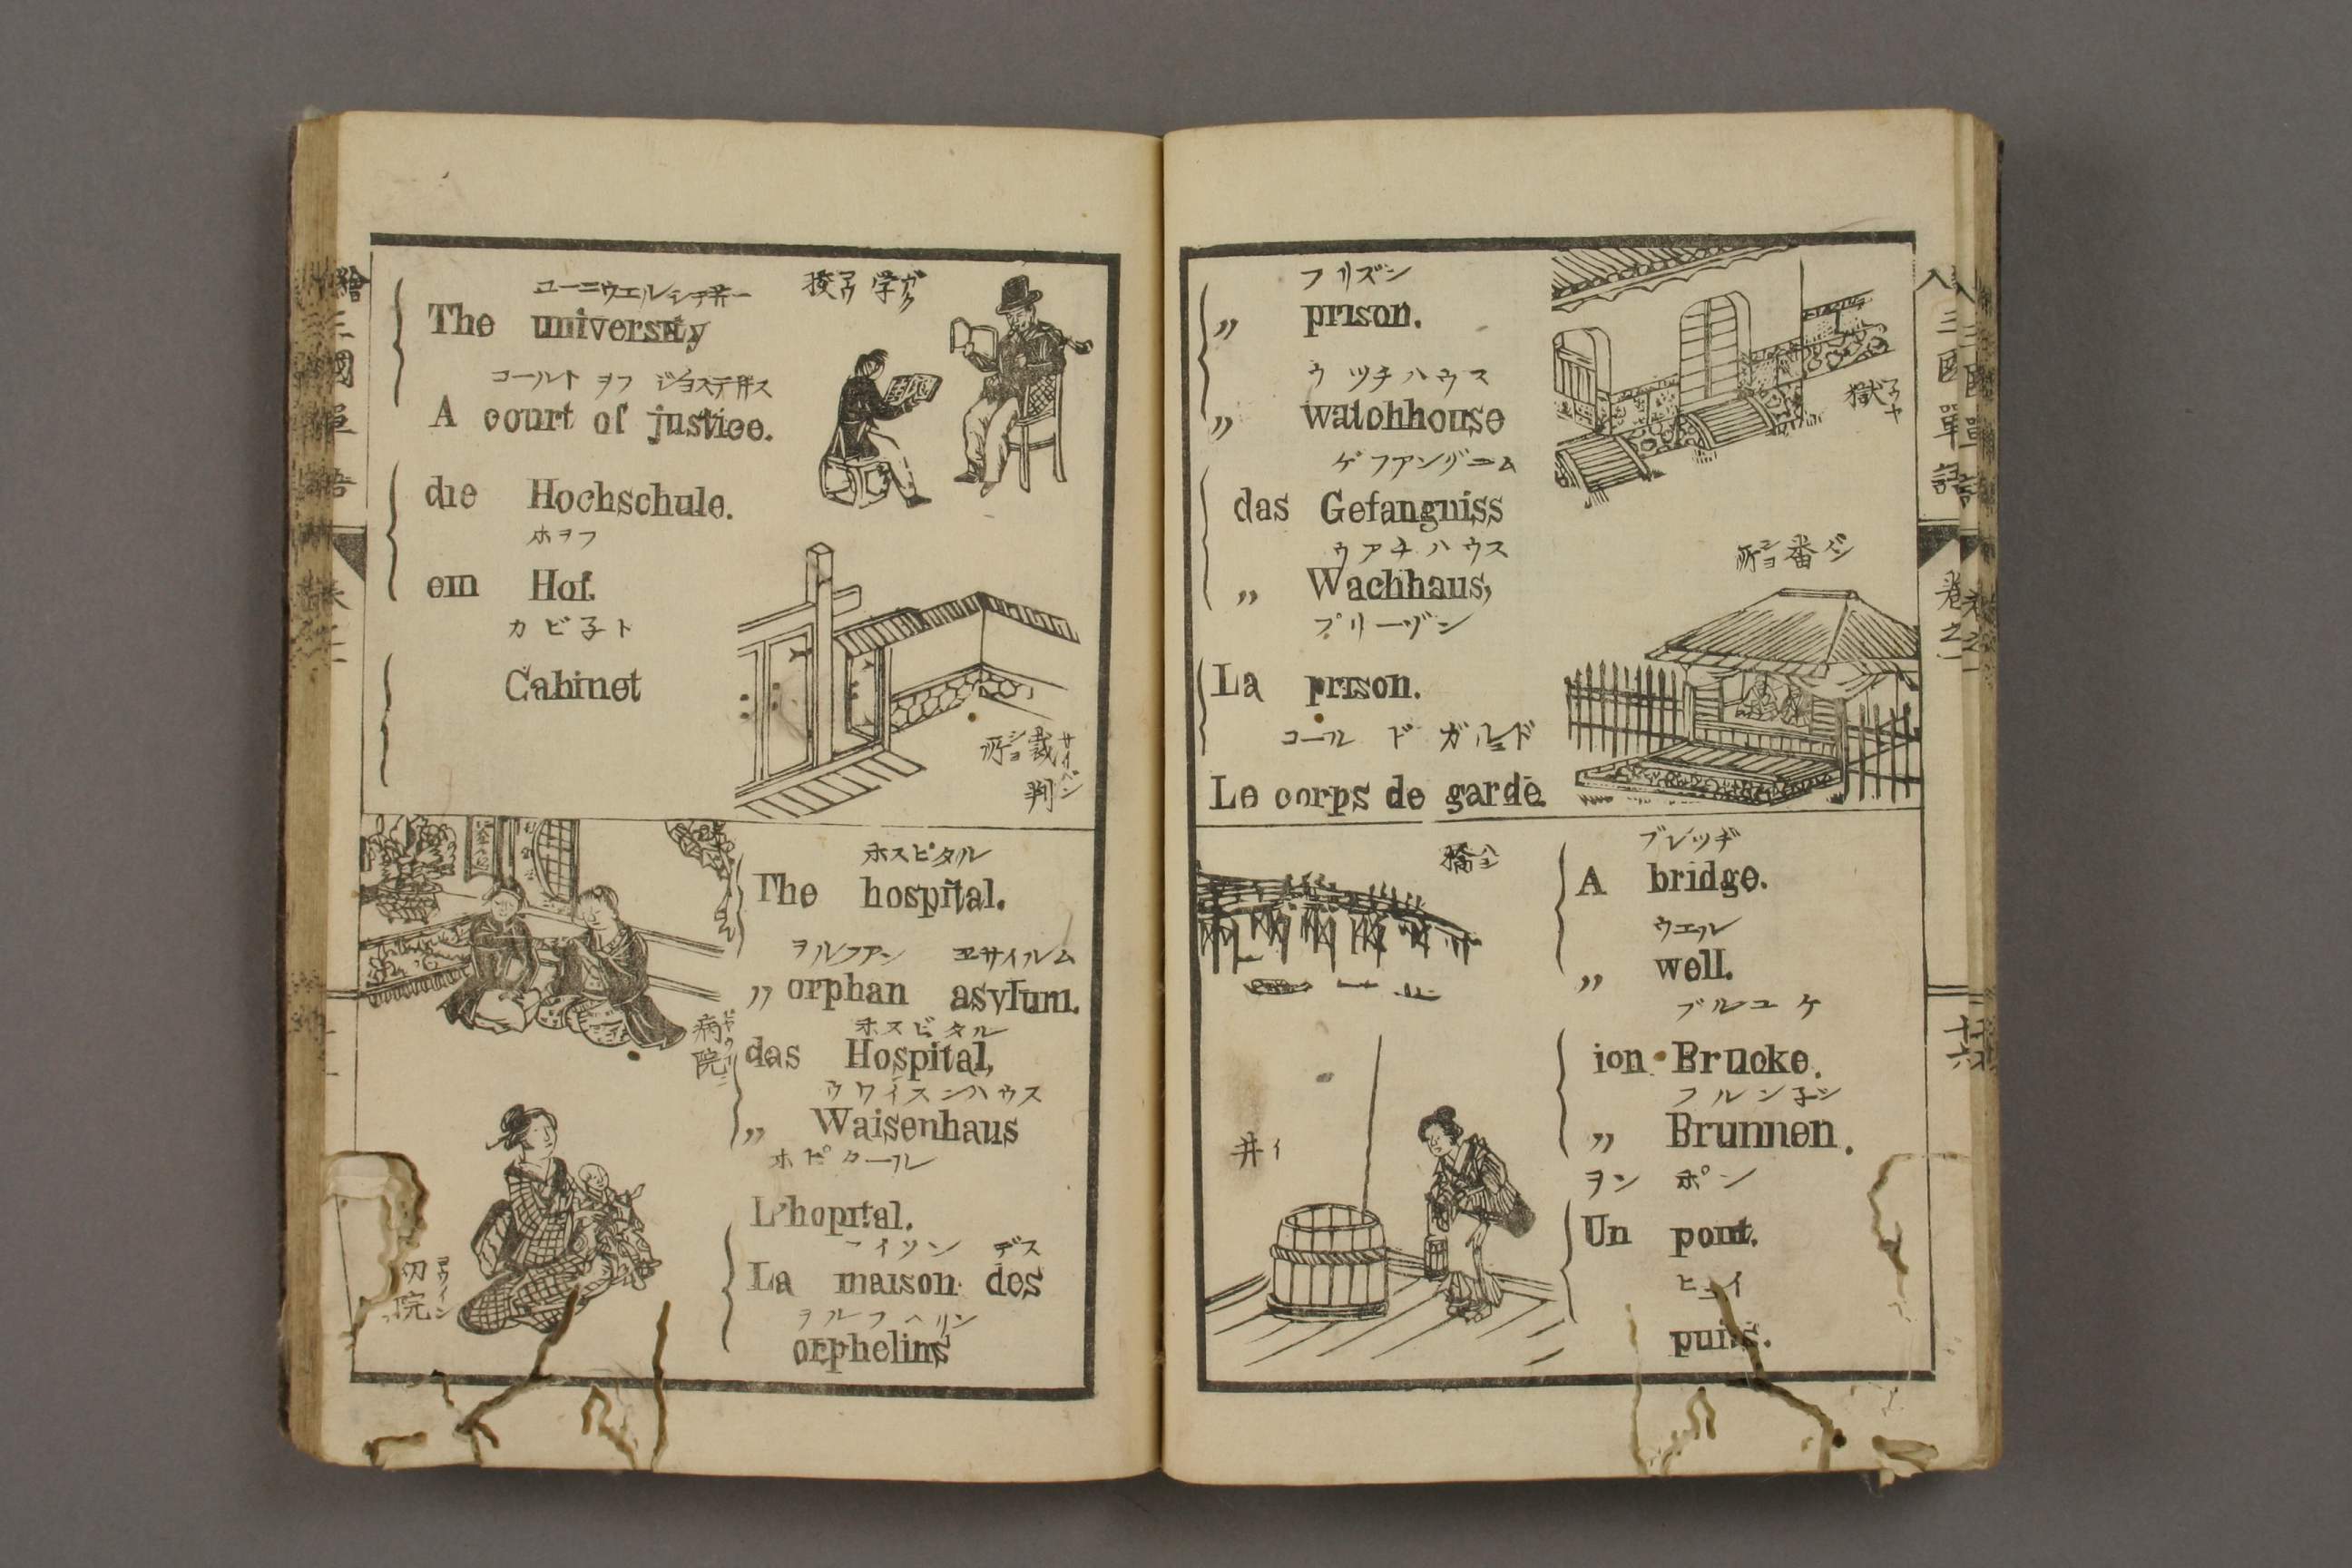 フリズン
„ prison.
ウツチハウス
„ watchhouse
ゲフアングニム
das Gefangniss
ウアチハウス
„ Wachhaus,
プリーゾン
La prison.
コール ド ガルド
Le corps de garde.
獄
番所
バンシヨ
橋
ハシ
井
イ
ブレツヂ
A bridge.
ウエル
„ well.
ブルユケ
ion Brucke.
フルン子ン
„ Brunnen.
ヲン ポン
Un pont.
ヒユイ
puits.
入三國單語
卷之二
十六
The university
コールト ヲフ
A court of justice.
die Hochschule.
ホヲフ
ein Hof.
カビ子ト
Cabinet
学校
ガクコウ
裁判所
サイバンシヨ
ホスピタル
The hospital.
ヲルフアン ヱサイルム
„ orphan asylum.
ホスピタル
das Hospital,
ウワイスンハウス
„ Waisenhaus
ホピタール
L'hopital.
イソン デス
La maison des
ヲルフヘリン
orphelins
病院
院